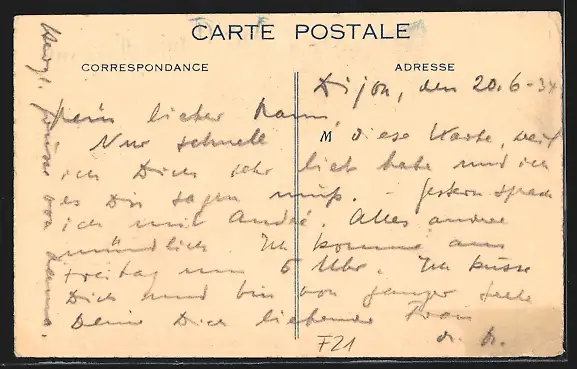 CARTE POSTALE
CORRESPONDANCE
ADRESSE
Dijon, den 20.6-34
Mein lieber Mann,
Nur schnell M diese Karte, weil
ich Dich sehr lieb habe und ich
es Dir sagen muß. - Gestern sprach
ich mit André. Alles andere
mündlich. Ich komme am
Freitag um 5 Uhr. Ich küsse
Dich und bin von ganzer Seele
Deine Dich liebende Frau
Herzl. Grüsse von
F21